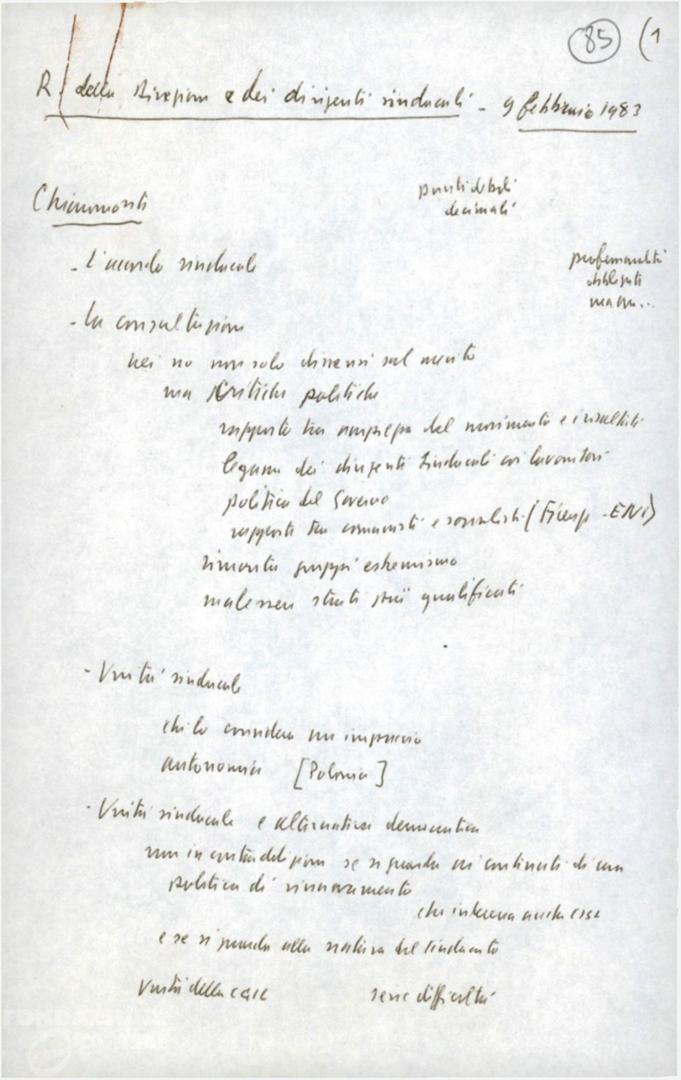 85 (1
R. della Direzione e dei dirigenti sindacali - 9 febbraio 1983
Chiaromonte
punti deboli
decimali
- L'accordo sindacale
- La consultazione
nei no non solo dissensi sul merito
ma critiche politiche
rapporto tra ampiezza del movimento e risultati
legame dei dirigenti sindacali coi lavoratori
politica del Governo
rapporti tra comunisti e socialisti ( - ENI)
rimonta gruppi estremismo
malessere strati più qualificati
- Unità sindacale
chi lo considera un impaccio
autonomia [Polonia]
- Unità sindacale e alternativa democratica
non in contraddizione se si guarda ai contenuti di una
politica di rinnovamento
che interessa anche essa
e se si guarda alla natura del sindacato
Unità della CGIL serie difficoltà